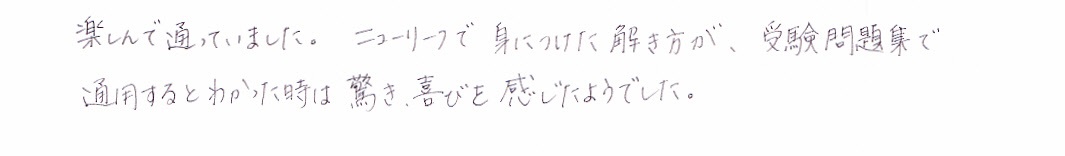 楽しんで通っていました。 ニューリーフで身につけた解き方が、受験問題集で
通用するとわかった時は驚き、喜びを感じたようでした。